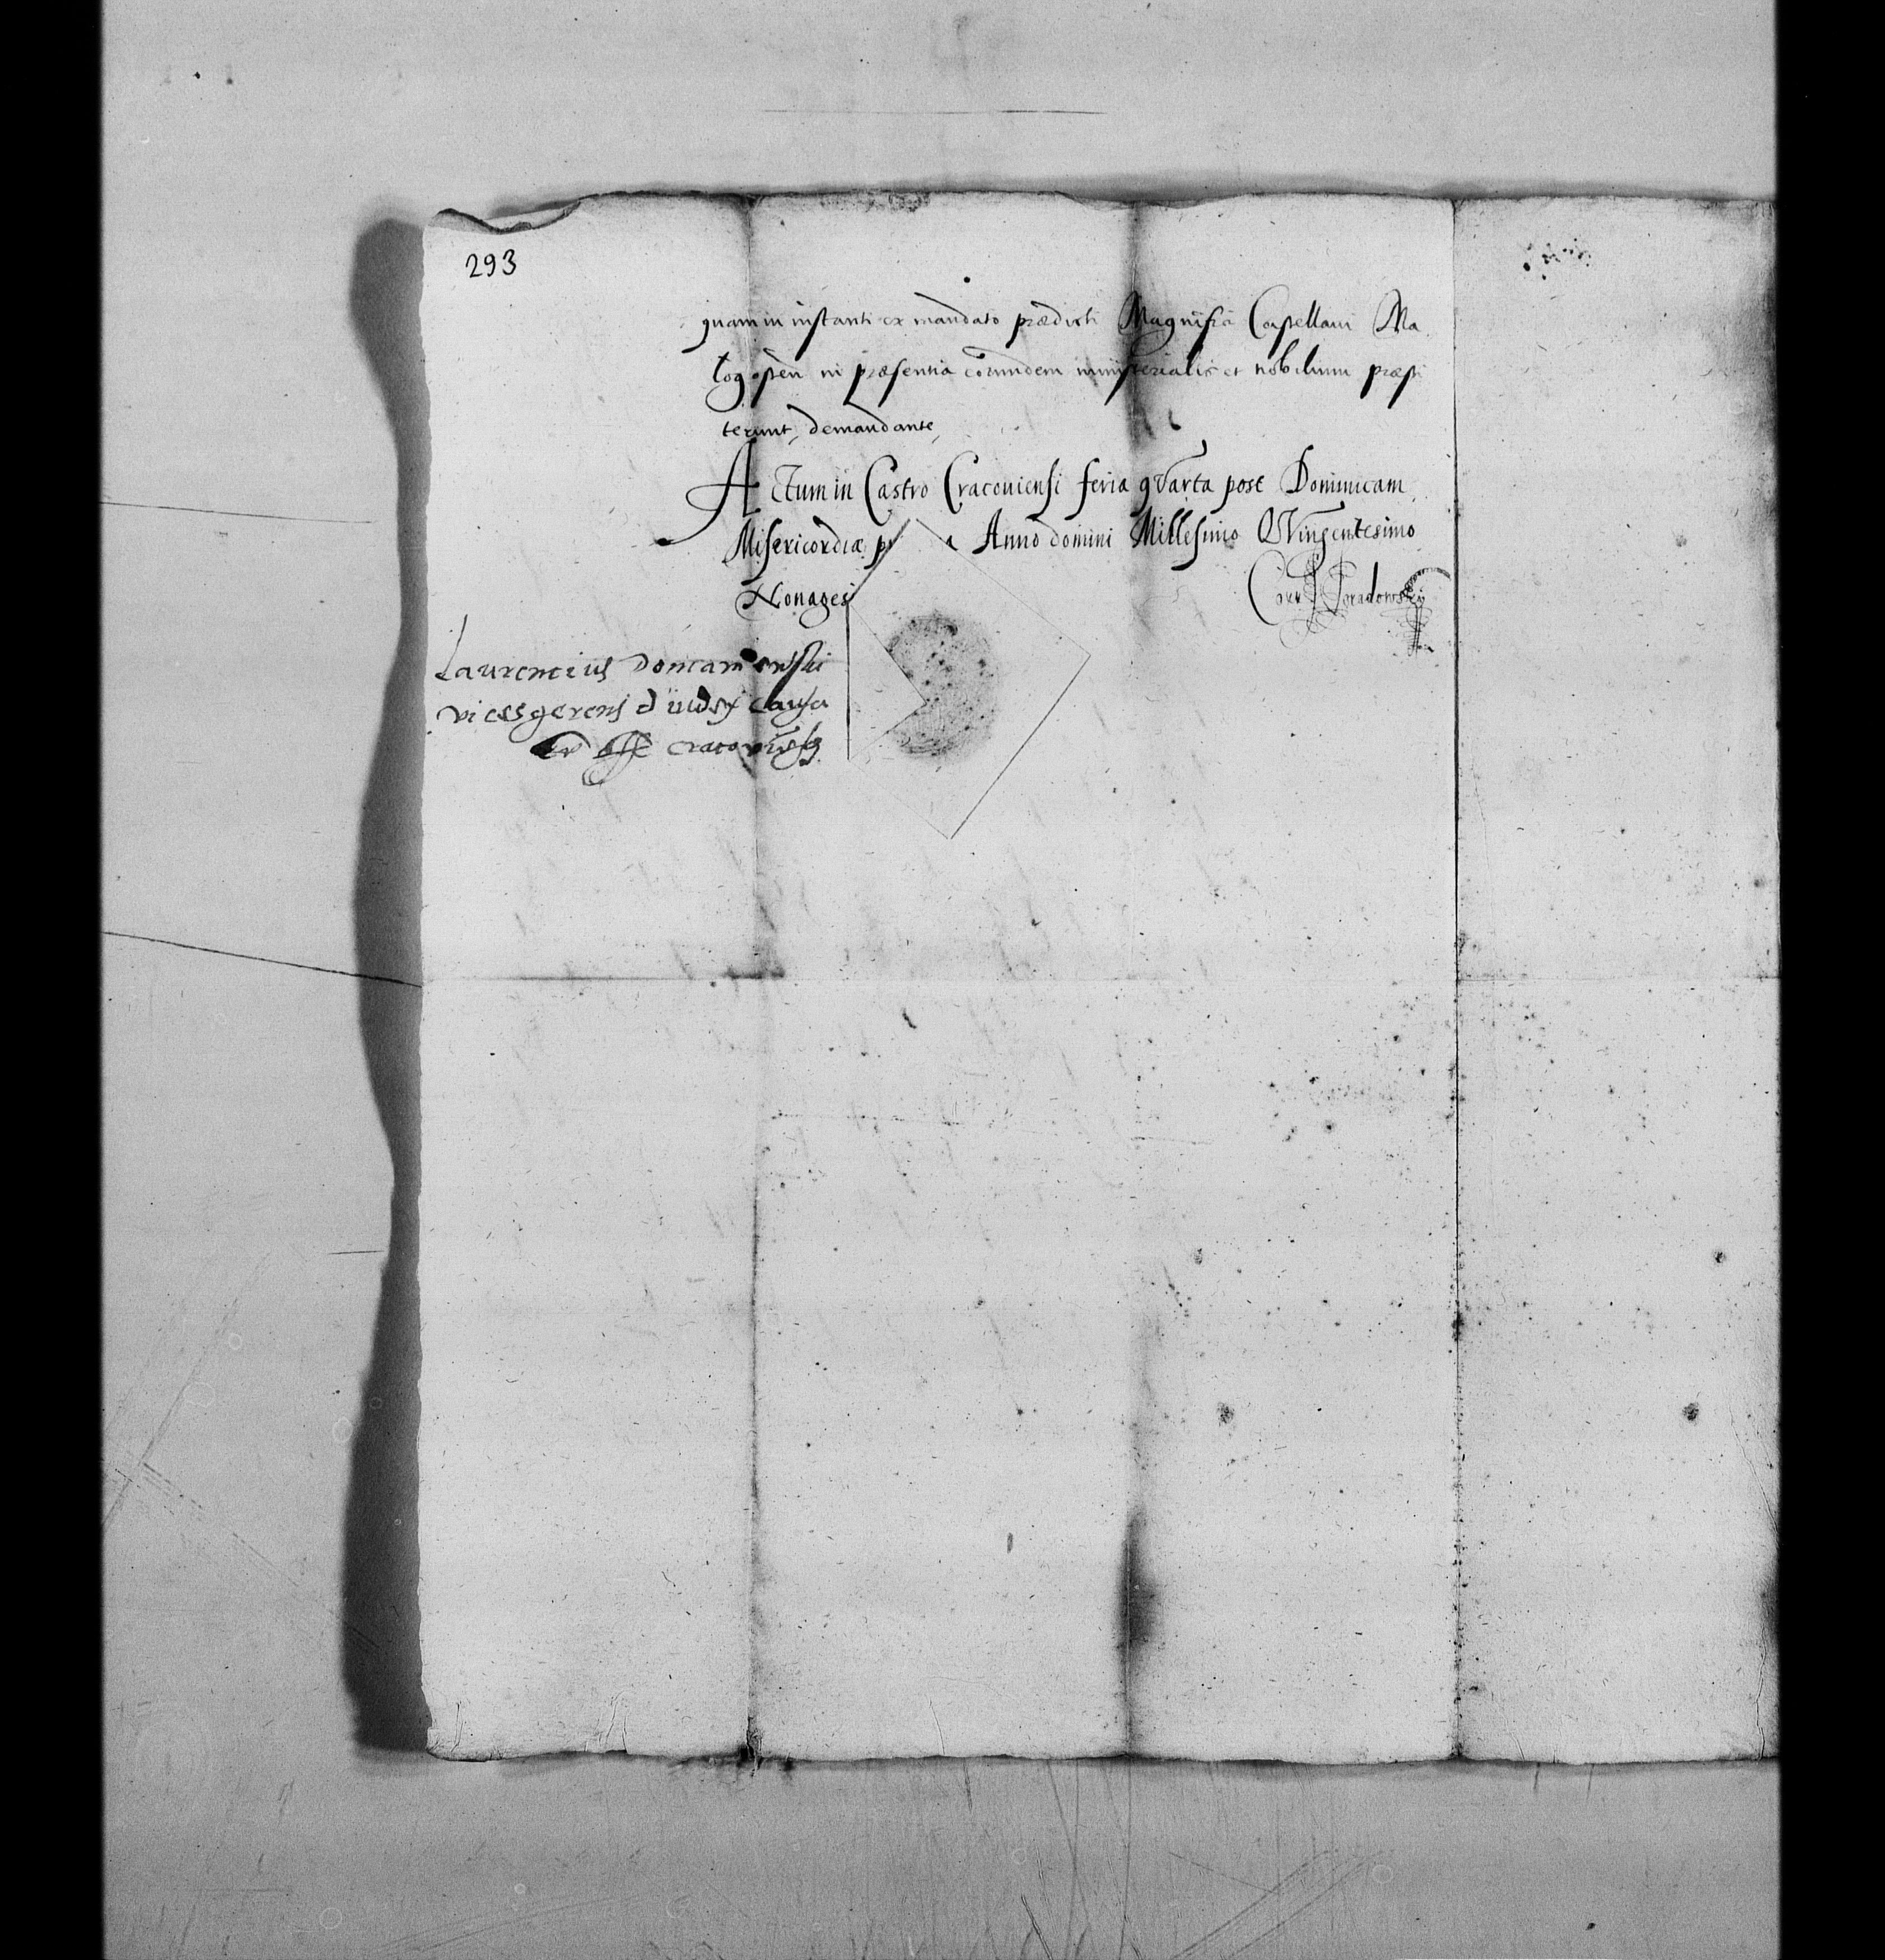 293
quam in instanti ex mandato prædicti Magnifici Castellani Ma
logosten in præsentia eorundem ministerialis et nobilium præsti
terunt, demandante,
Actum in Castro Cracouiensi feria qVarta post Dominicam
Misericordiæ Anno domini Millesimo QVingentesimo
Nonages
Laurencius
vices gerens causar
Cracovien